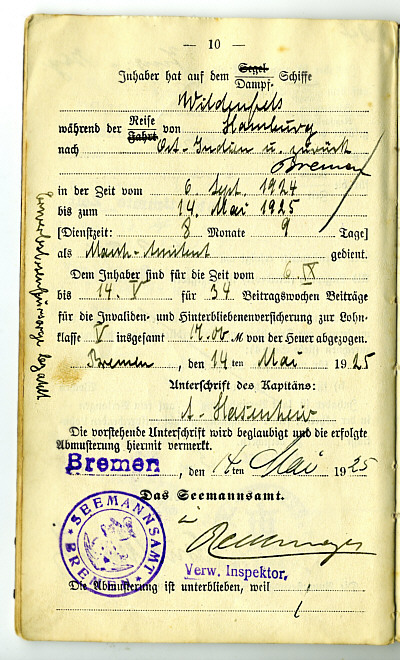 — 10 —
Inhaber hat auf dem Segel- Dampf- Schiffe
Wildenfels
während der Reise Fahrt von Hamburg
nach Ost-Indien u. zurück
Bremen
in der Zeit vom 6. Sept. 1924
bis zum 14. Mai 1925
[Dienstzeit: 8 Monate 9 Tage]
als Masch-Assistent gedient.
Dem Inhaber sind für die Zeit vom 6. IX
bis 14. V für 34 Beitragswochen Beiträge
für die Invaliden- und Hinterbliebenenversicherung zur Lohn-
klasse V insgesamt 17.00 M von der Heuer abgezogen.
Bremen, den 14ten Mai 1925
Unterschrift des Kapitäns:
A. Hasenheir
Die vorstehende Unterschrift wird beglaubigt und die erfolgte
Abmusterung hiermit vermerkt.
Bremen, den 14ten Mai 1925
Das Seemannsamt.
SEEMANNSAMT
BREMEN
Verw. Inspektor.
Die Abmusterung ist unterblieben, weil